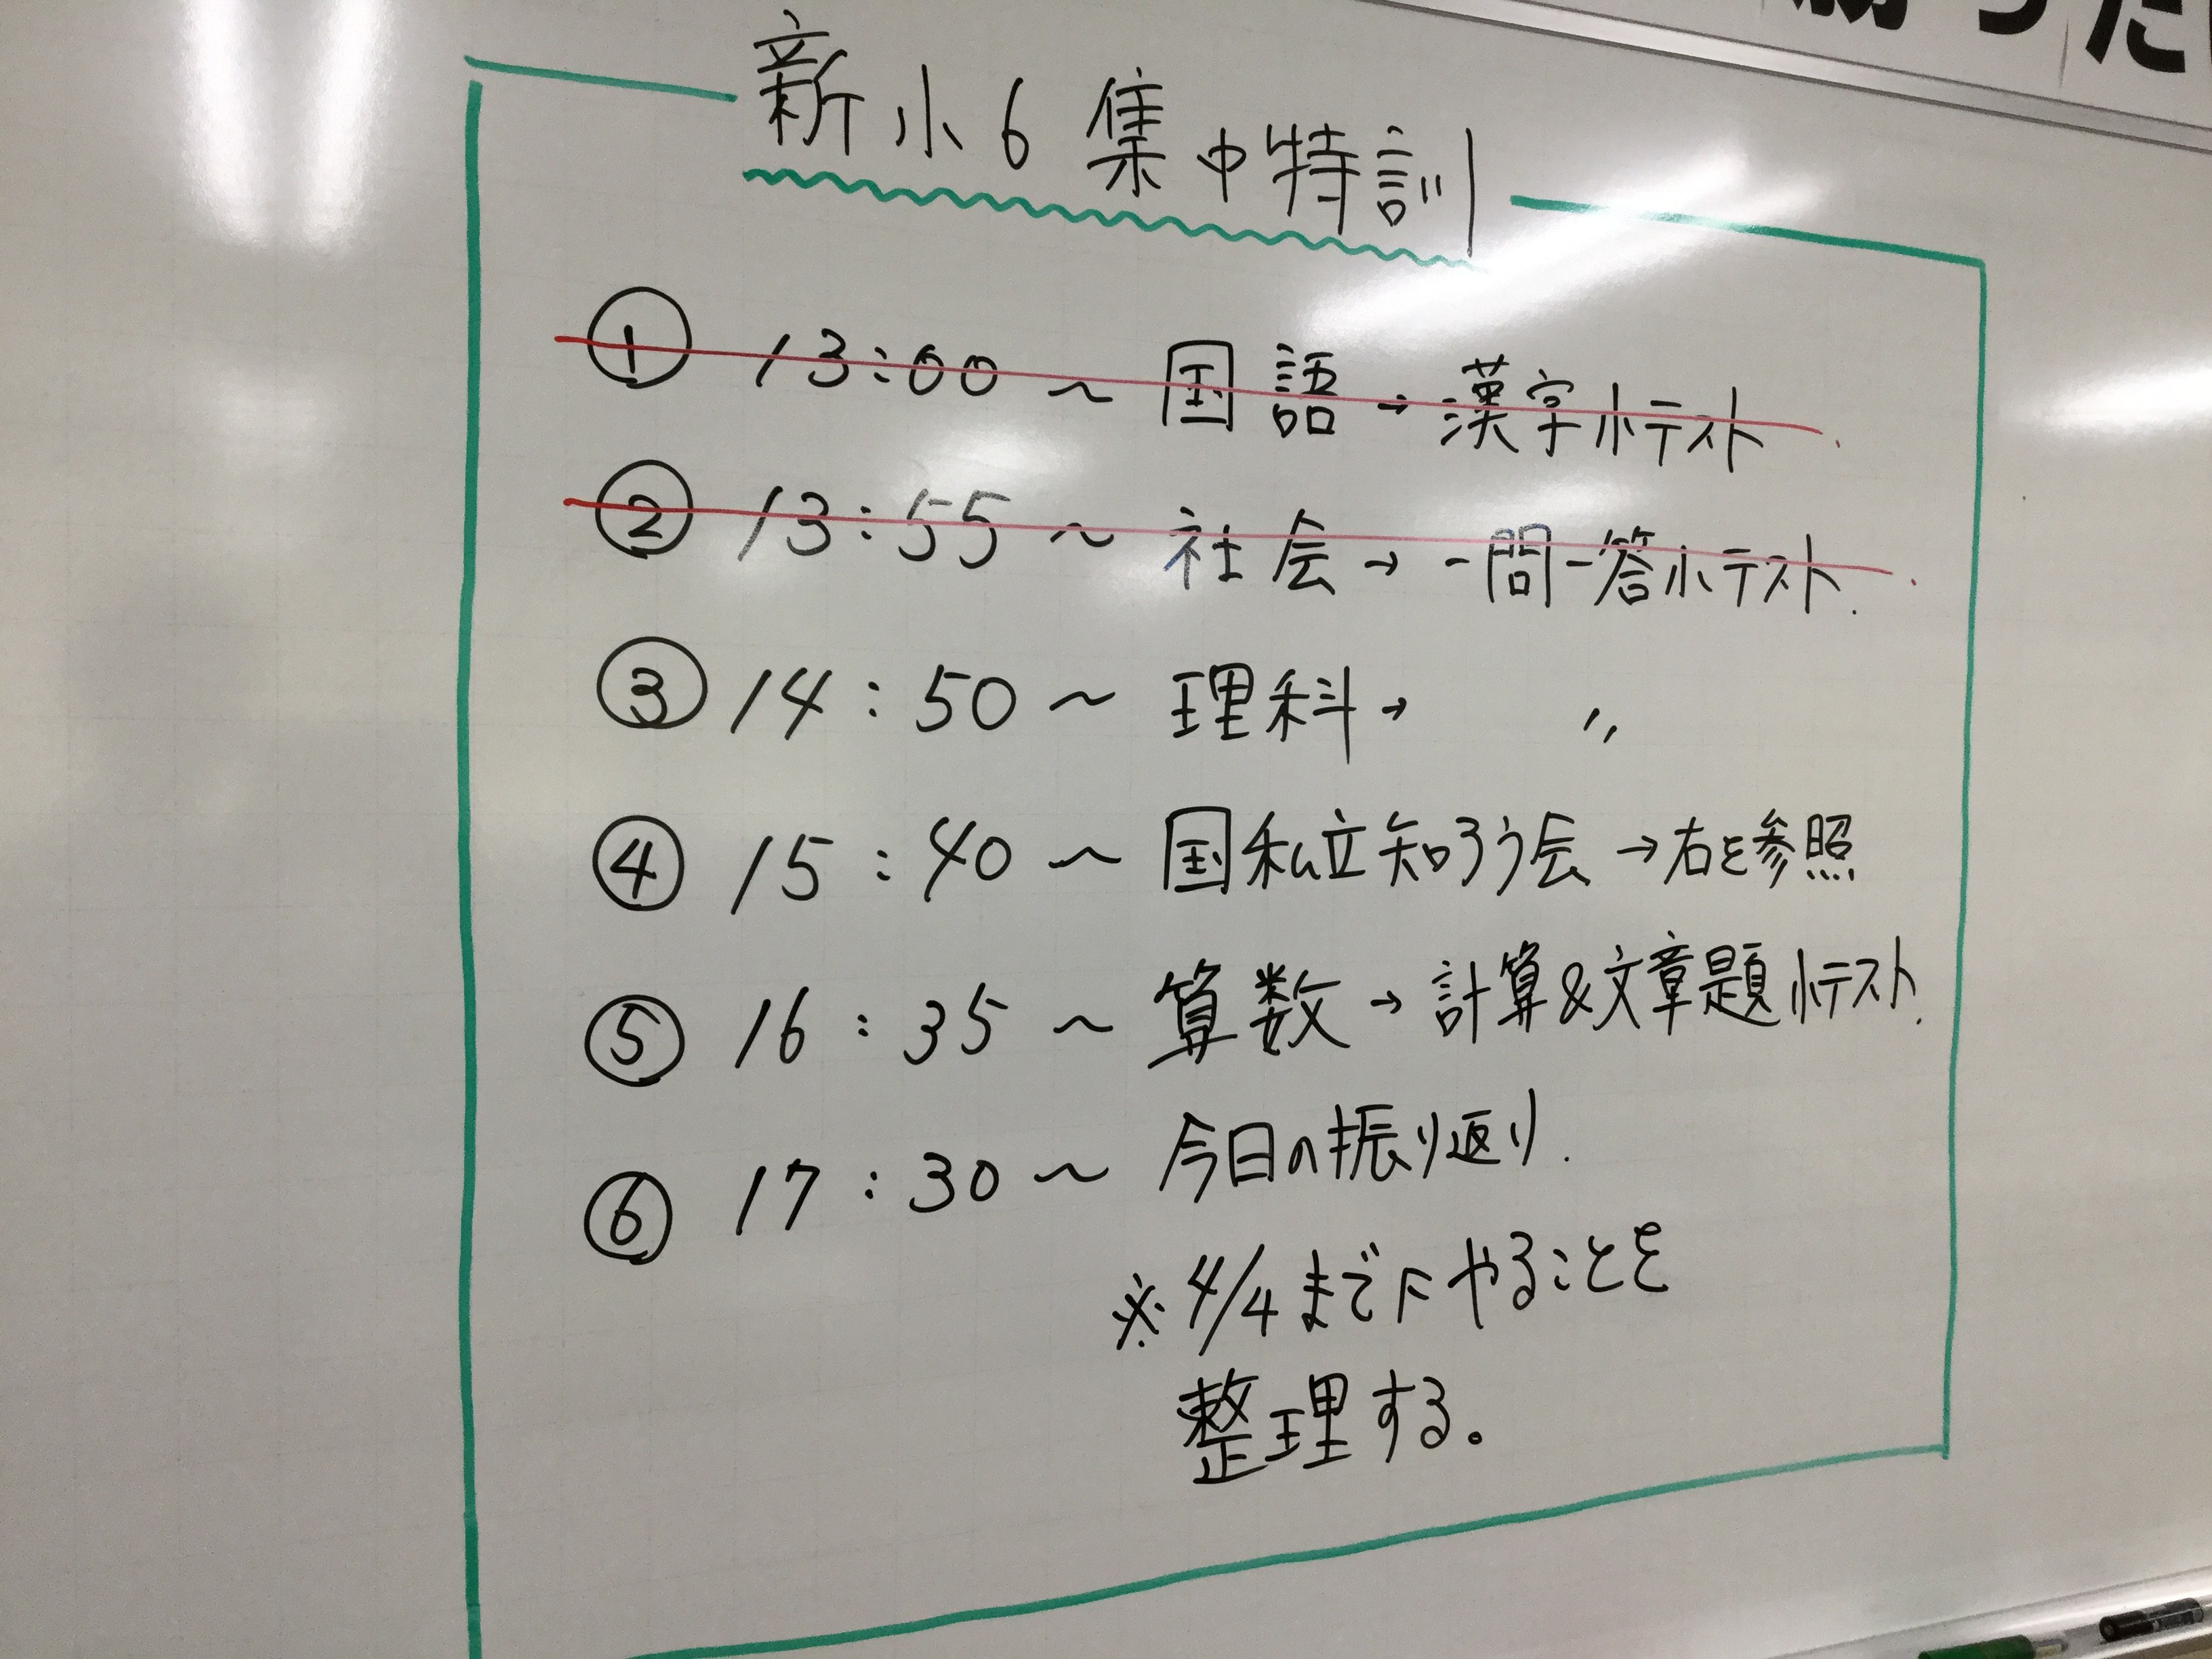 新小6集中特訓
① 13:00 〜 国語 → 漢字小テスト
② 13:55 〜 社会 → 一問一答小テスト.
③ 14:50 〜 理科 → 〃
④ 15:40 〜 国私立知ろう会 → 右を参照
⑤ 16:35 〜 算数 → 計算&文章題小テスト.
⑥ 17:30 〜 今日の振り返り.
※ 4/4までにやることを
整理する。